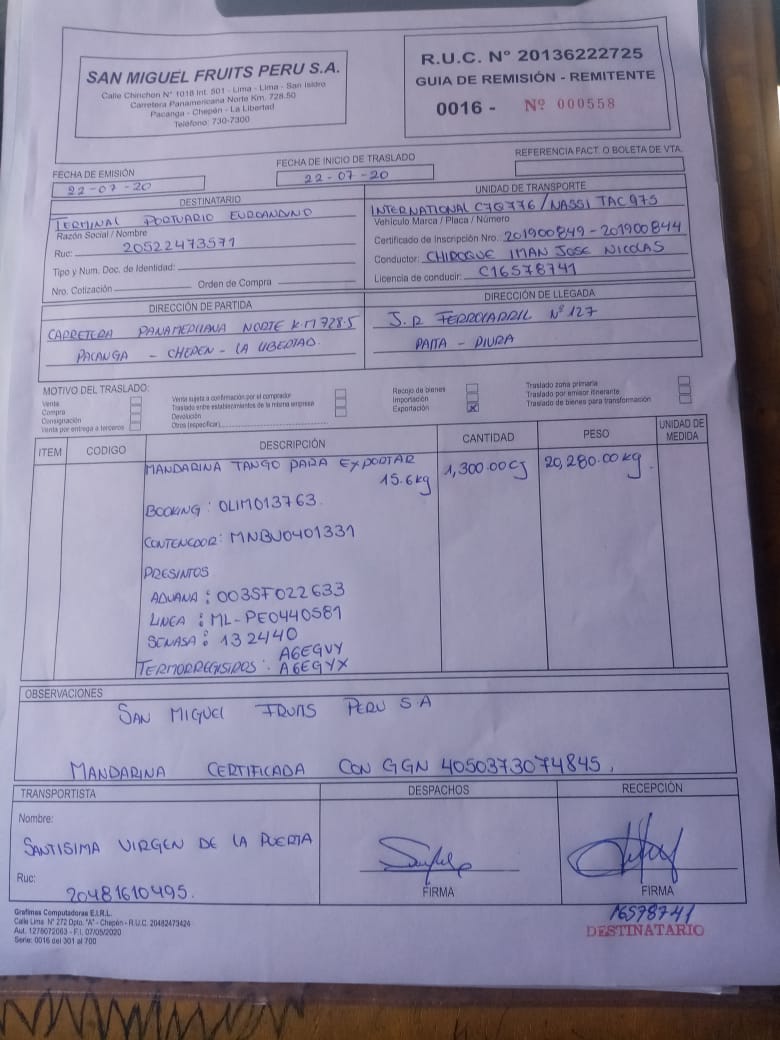 SAN MIGUEL FRUITS PERU S.A.
Calle Chinchon N° 1018 Int. 501 - Lima - Lima - San Isidro
Carretera Panamericana Norte Km. 728.50
Pacanga - Chepén - La Libertad
Telefono: 730-7300
R.U.C. N° 20136222725
GUIA DE REMISIÓN - REMITENTE
0016 - Nº 000558
FECHA DE EMISIÓN
22-07-20
FECHA DE INICIO DE TRASLADO
22-07-20
REFERENCIA FACT. O BOLETA DE VTA.
DESTINATARIO
TERMINAL PORTUARIO EUROANDINO
Razón Social / Nombre
Ruc: 20522473571
Tipo y Num. Doc. de Identidad:
Nro. Cotización Orden de Compra
UNIDAD DE TRANSPORTE
INTERNATIONAL C7Q776/NASSI TAC975
Vehículo Marca / Placa / Número
Certificado de Inscripción Nro. 201900849-201900844
Conductor: CHIROQUE IMAN JOSE NICOLAS
Licencia de conducir: C16578741
DIRECCIÓN DE PARTIDA
CARRETERA PANAMERICANA NORTE K.M 728.5
PACANGA - CHEPEN - LA LIBERTAD.
DIRECCIÓN DE LLEGADA
J.R FERROCARRIL Nº 127
PAITA - PIURA
MOTIVO DEL TRASLADO:
Venta
Compra
Consignación
Venta por entrega a terceros
Venta sujeta a confirmación por el comprador
Traslado entre establecimientos de la misma empresa
Devolución
Otros (especificar)
Recojo de bienes
Importación
Exportación X
Traslado zona primaria
Traslado por emisor itinerante
Traslado de bienes para transformación
ITEM CODIGO DESCRIPCIÓN CANTIDAD PESO UNIDAD DE MEDIDA
MANDARINA TANGO PARA EXPORTAR 1,300.00CJ 20,280.00kg.
15.6kg
BOOKING: OLIM013763.
CONTENEDOR: MNBU0401331
PRESINTOS
ADUANA: 003SF022633
LINEA: ML-PE0440581
SENASA: 132440
A6EGVY
TERMORREGISTROS: A6EGYX
OBSERVACIONES
SAN MIGUEL FRUITS PERU S A
MANDARINA CERTIFICADA CON GGN 4050373074845.
TRANSPORTISTA
Nombre:
SANTISIMA VIRGEN DE LA PUERTA
Ruc:
20481610495.
DESPACHOS
FIRMA
RECEPCIÓN
FIRMA
16578741
DESTINATARIO
Grafimas Computadoras E.I.R.L.
Calle Lima N° 272 Dpto. "A" - Chepén - R.U.C. 20482473424
Aut. 1278072063 - F.I. 07/05/2020
Serie: 0016 del 301 al 700